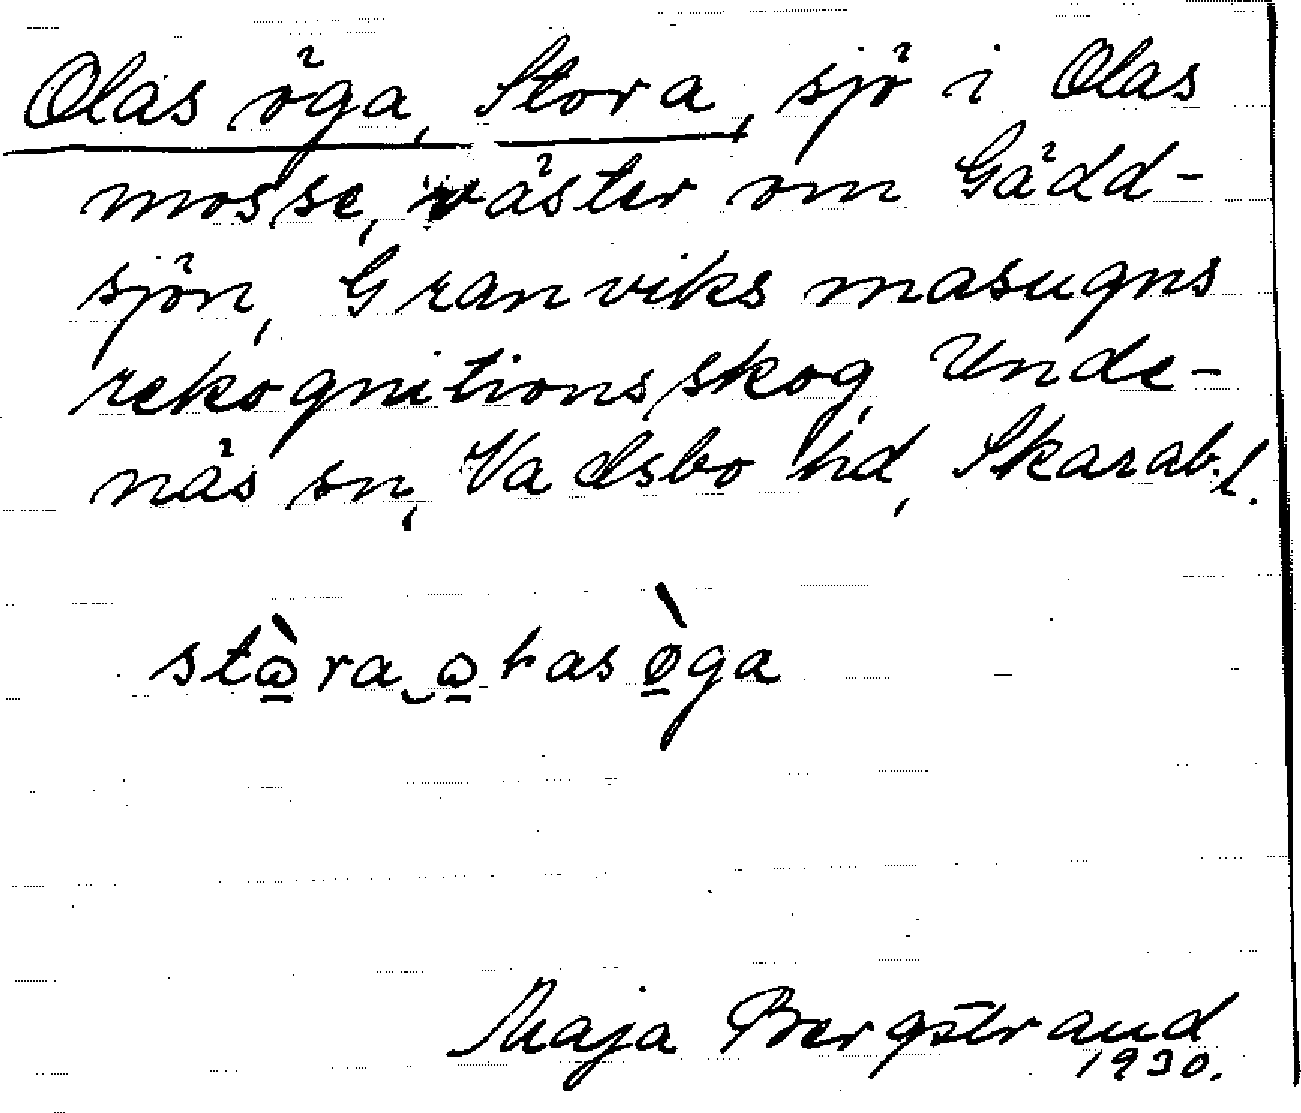 Olas öga, Stora, sjö i Olas
mosse, väster om Gädd-
sjön, Granviks masugns
rekognitionsskog, Unde-
näs sn, Vadsbo hd, Skarab. l.
stὼ̲ra‿ω̲łasø̲̀ga
Maja Bergstrand
1930.